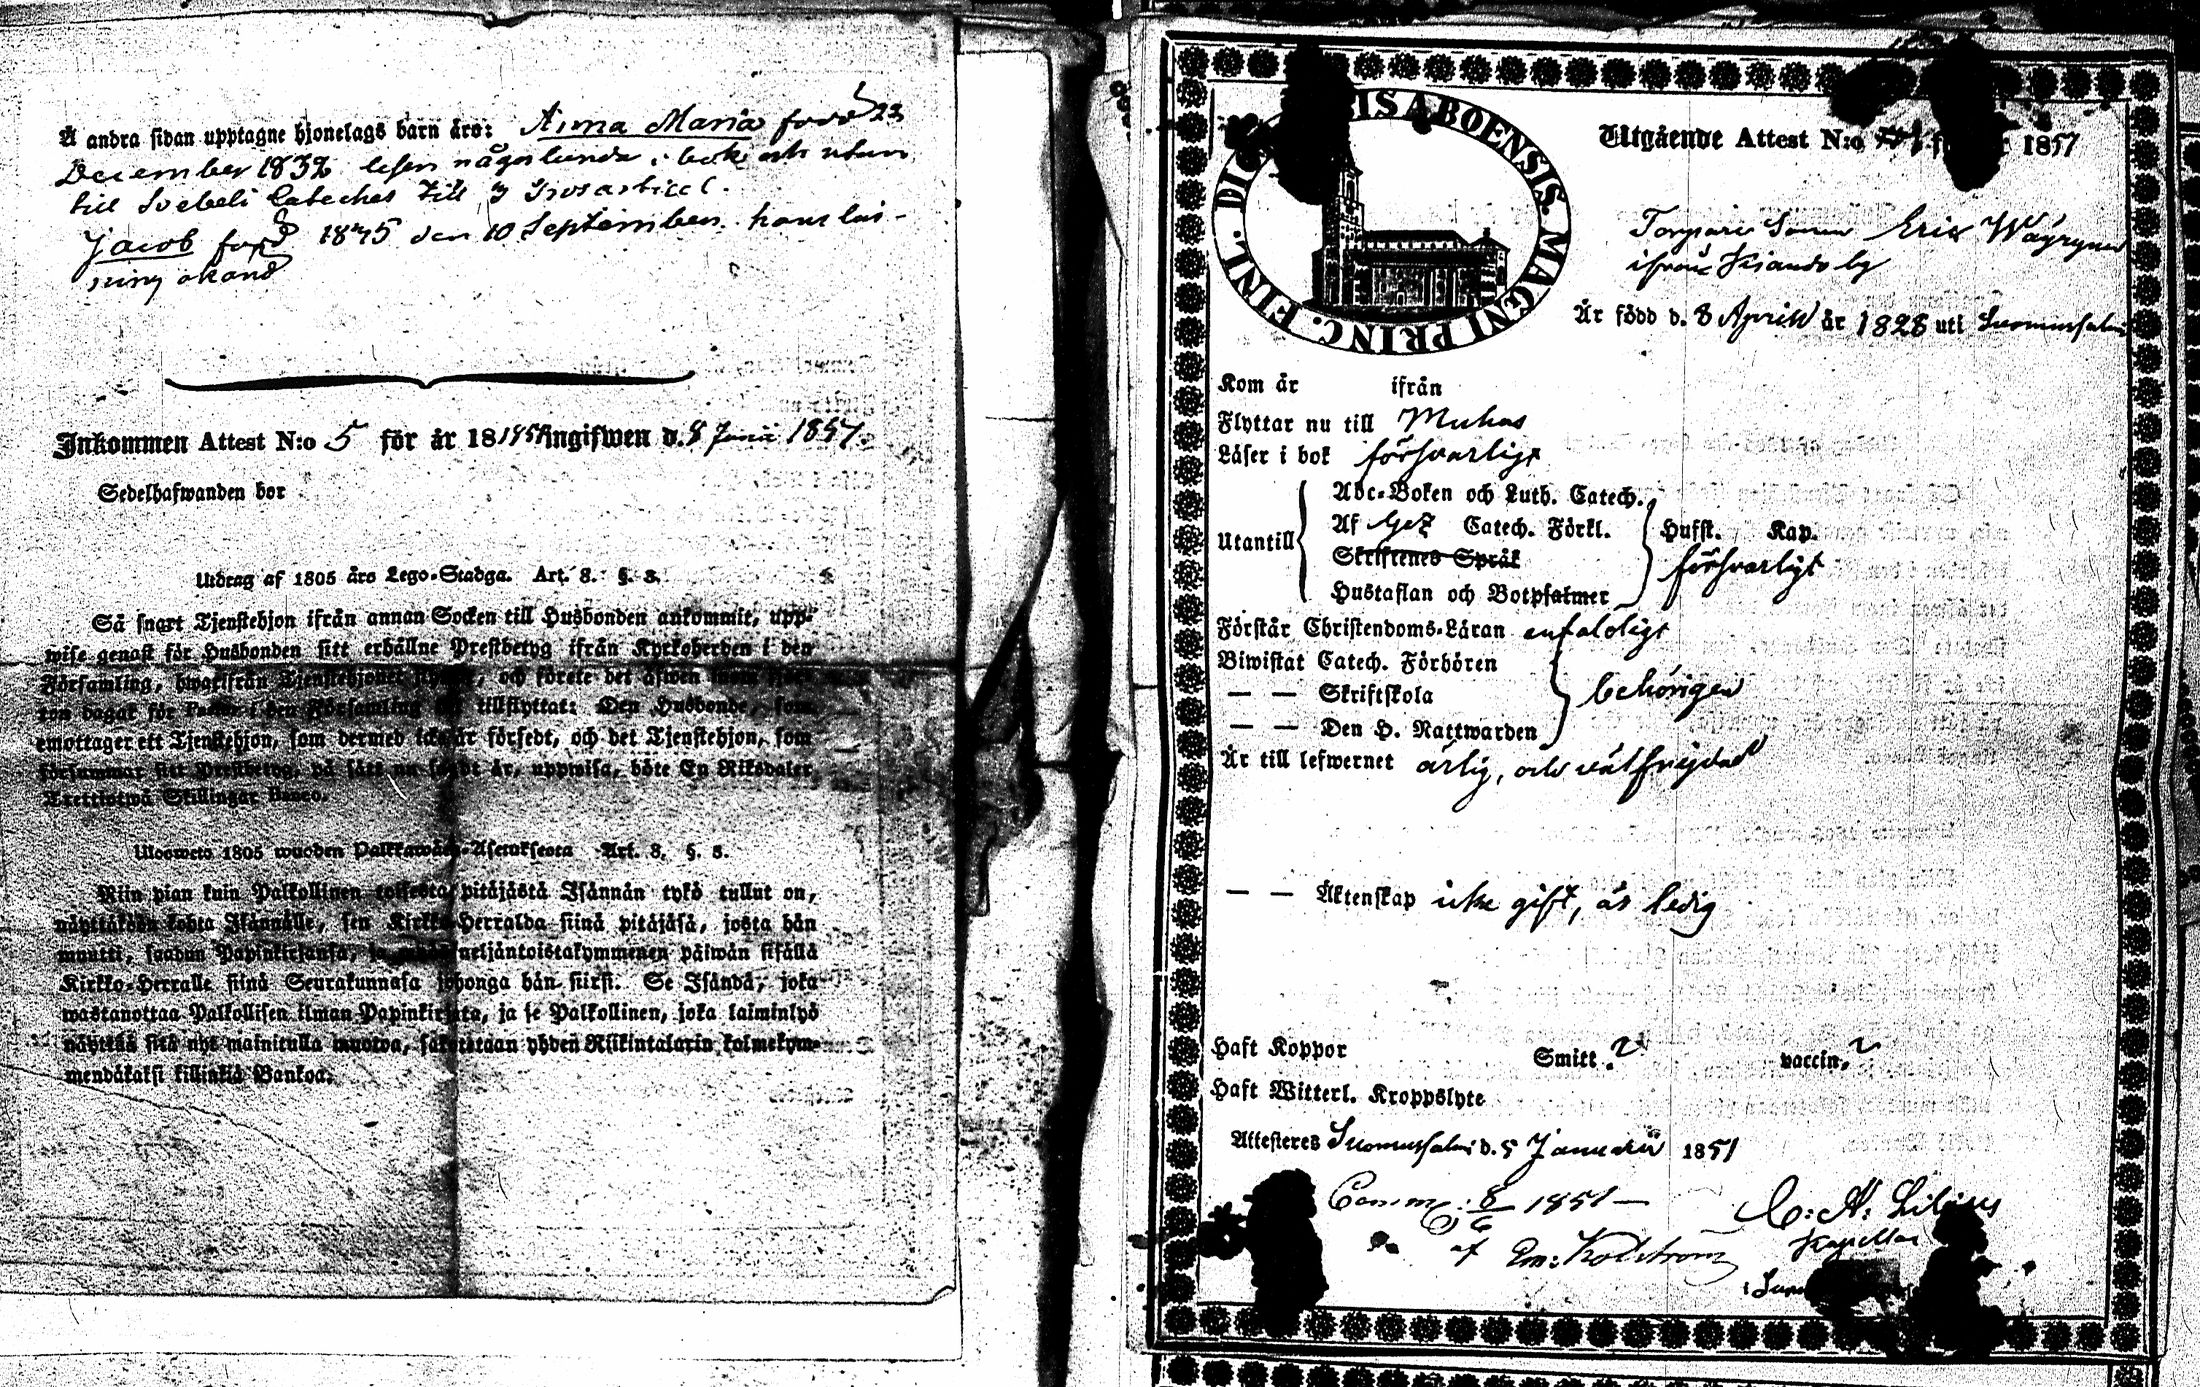 Å andra sidan upptagne hjonelags barn äro: Anna Maria född 23
December 1832 läser någorlunda i bok och utan
till Svebeli Cateches till 3 trosartikel.
Jacob född 1845 den 10 September. hans läs-
ning okänd
Inkommen Attest N:o 5 för år 18 1851 ingifwen d. 8 Junii 1851.
Sedelhafwanden bor
Utdrag af 1805 års Lego-Stadga. Art. 8. §. 3.
Så snart Tjenstehjon ifrån annan Socken till Husbonden ankommit, upp-
wise genast för Husbonden sitt erhållne Prestbetyg ifrån Kyrkoherden i den
Församling, hwarifrån Tjenstehjonet flyttat, och förete det äfwen inom fjor-
ton dagar för Pastor i den Församling dit tillflyttat: Den Husbonde, som
emottager ett Tjenstehjon, som dermed icke är försedt, och det Tjenstehjon, som
försummar sitt Prestbetyg, på sätt nu sagdt är, uppwisa, böte En Riksdaler
Trettiotwå Skillingar Banco.
Ulosweto 1805 wuoden Palkkawäen-Asetuksesta Art. 8. §. 3.
Niin pian kuin Palkollinen toisesta pitäjästä Isännän tykö tullut on,
näyttäköön kohta Isännälle, sen Kirkko-Herralda siinä pitäjäsä, josta hän
muutti, saadun Papinkirjansa, ja neljäntoistakymmenen päiwän sisällä
Kirkko-Herralle siinä Seurakunnasa johonga hän siirsi. Se Isändä, joka
wastanottaa Palkollisen ilman Papinkirjata, ja se Palkollinen, joka laiminlyö
näyttää sitä nyt mainitulla muotoa, sakotetaan yhden Riikintalarin kolmekym-
mendäkaksi killinkiä Bankoa.
DIOECESIS ABOENSIS. MAGNI PRINC. FINL.
Utgående Attest N:o för år 1851
Torpare Sonen Erik Wäyrynen
ifrån Kiando by
Är född d. 8 Aprill år 1828 uti Suomussalmi
Kom år ifrån
Flyttar nu till Muhos
Läser i bok försvarligt
Abc-Boken och Luth. Catech.
Utantill Af Gez Catech. Förkl. Hufst. Kap.
Skriftenes Språk försvarligt
Hustaflan och Botpsalmer
Förstår Christendoms-Läran enfaldligt
Biwistat Catech. Förhören
— — Skriftskola behörigen
— — Den H. Nattwarden
Är till lefwernet ärlig, och välfrejdad
— — Äktenskap icke gift, är ledig
Haft Koppor Smitt. ? vaccin. ?
Haft Witterl. Kroppslyte
Attesteres Suomussalmi d. 5 Januarii 1851
Comm: 8/6 1851 — C: A: Lilius
af Em: Kolström Kapellan